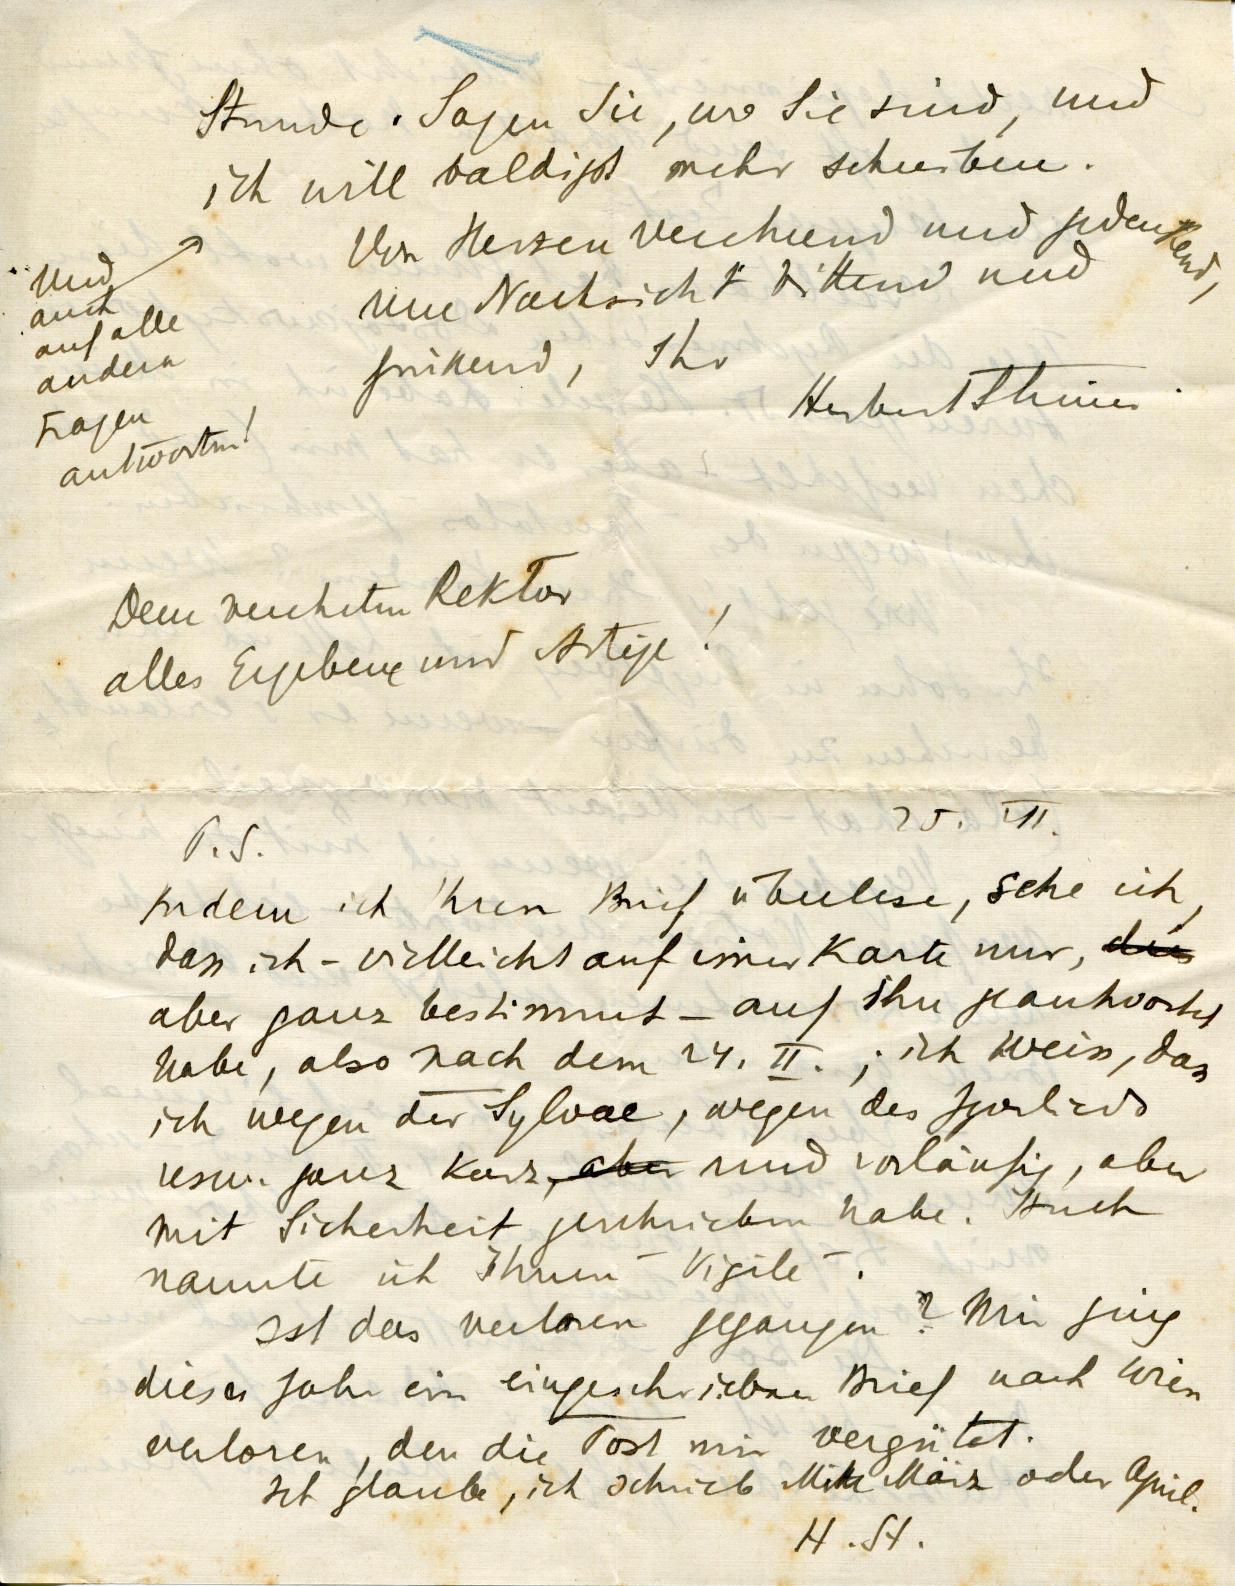 Stunde. Sagen Sie, wo Sie sind, und
ich will baldigst mehr schreiben.
Von Herzen verehrend und gedenkend,
um Nachsicht bittend und
grüßend, Ihr
Herbert Steiner.
Und
auch
auf alle
andern
Fragen
antworten!
Dem verehrten Rektor
alles Ergebene und Artige!
25. VII.
P.S.
Indem ich Ihren Brief überlese, sehe ich,
dass ich – vielleicht auf einer Karte nur, die
aber ganz bestimmt – auf ihn geantwortet
habe, also nach dem 24. II.; ich weiss, dass
ich wegen der Sylvae, wegen des
resw. ganz kurz, aber und vorläufig, aber
mit Sicherheit geschrieben habe. Auch
nannte ich Ihnen "Vigile".
Ist das verloren gegangen? Mir ging
dieses Jahr ein eingeschriebener Brief nach Wien
verloren, den die Post mir vergütet.
Ich glaube, ich schrieb Mitte März oder April.
H. St.